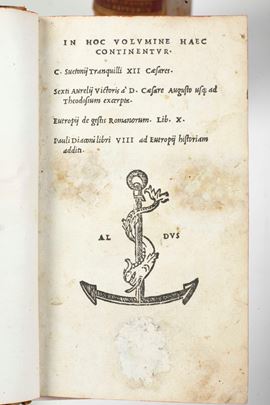 IN HOC VOLVMINE HAEC
CONTINENTVR.
C. Suetonij Tranquilli XII Cæsares.
Sexti Aurelij Victoris à D. Cæsare Augusto usq; ad
Theodosium excerpta.
Eutropij de gestis Romanorum. Lib. X.
Pauli Diaconi libri VIII ad Eutropij historiam
additi.
AL DVS